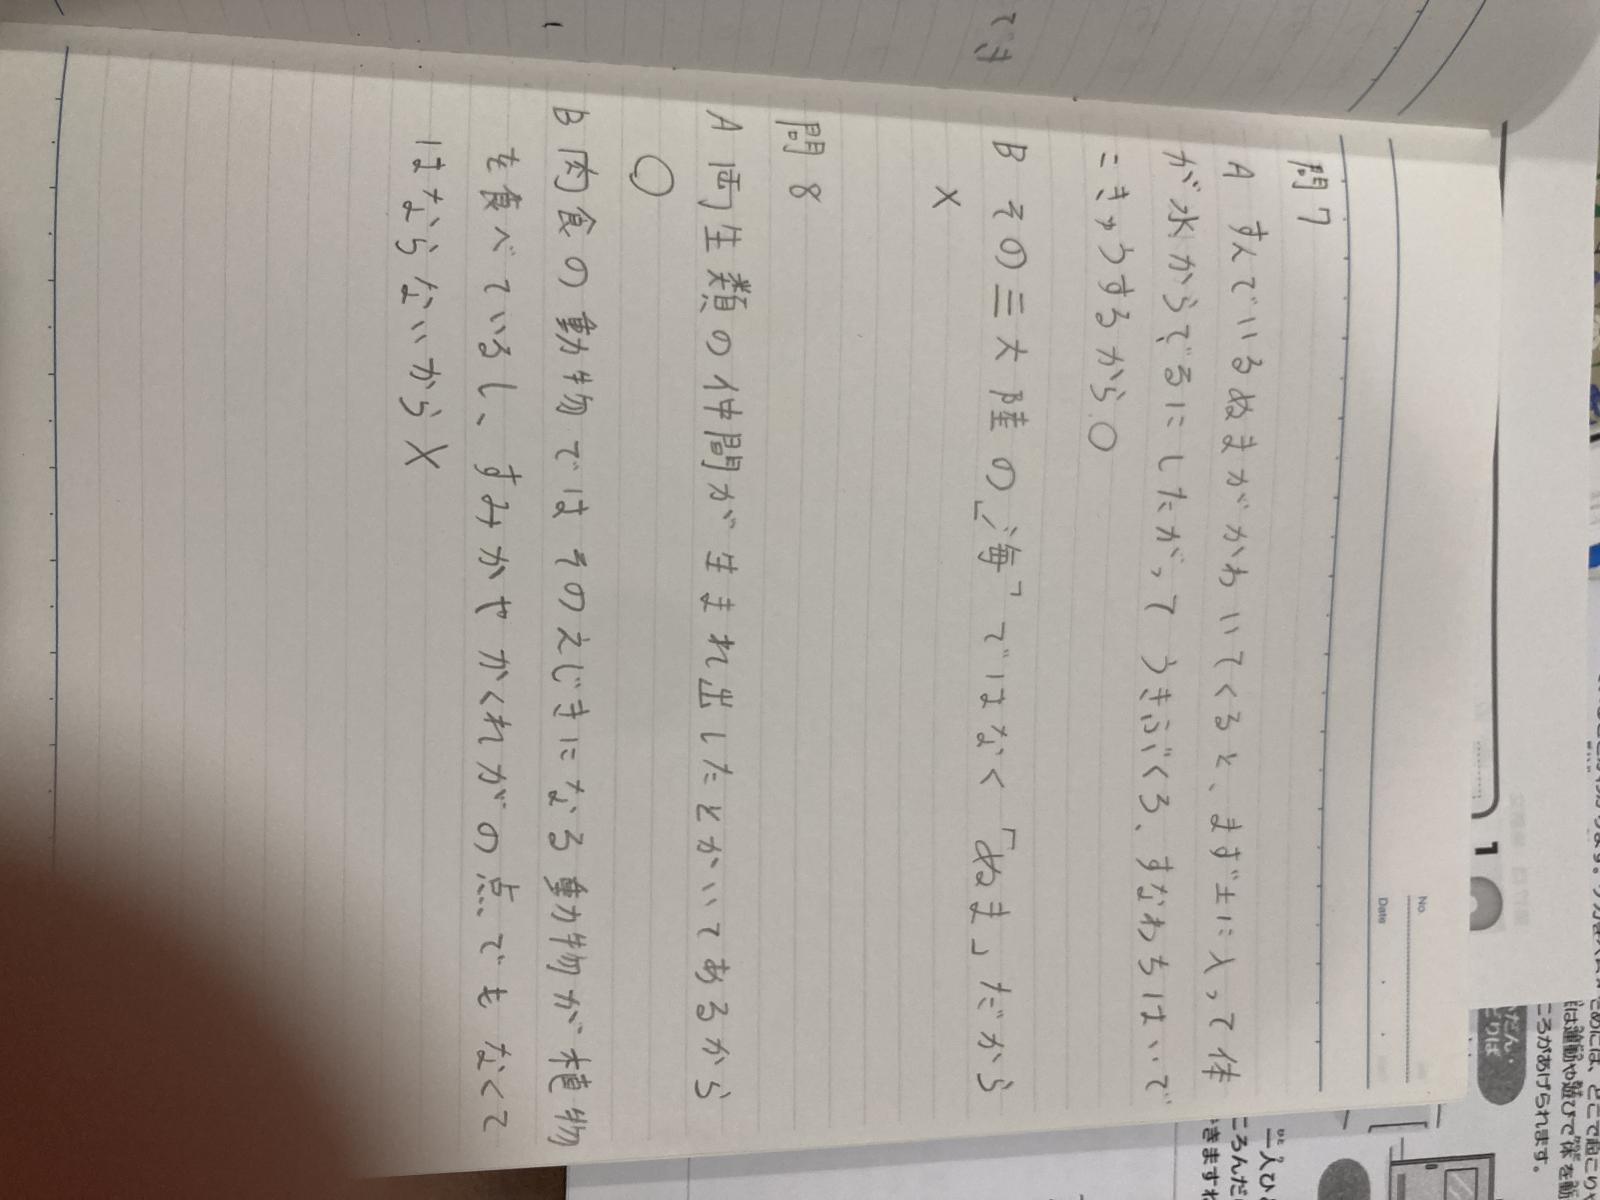 でき
No.
Date
問7
A すんでいるぬまがかわいてくると、まず土に入って体
が水からでるにしたがって うきぶくろ、すなわちはいで
こきゅうするから ○
B その三大陸の「海」ではなく「ぬま」だから
×
問8
A 両生類の仲間が生まれ出したとかいてあるから
○
B 肉食の動物では そのえじきになる動物が植物
を食べているし、すみかやかくれがの点でもなくて
はならないから ×
1
ころがあげられます。